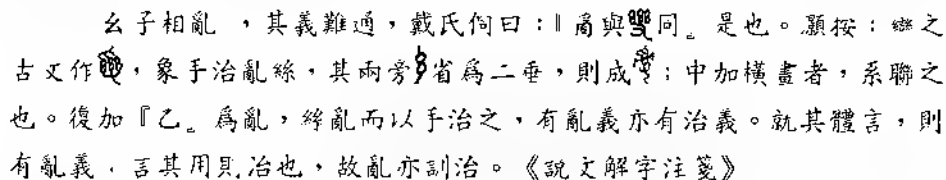 幺子相亂，其義難通，戴氏侗曰：『𤔔與𢇍同。』是也。灝按：䜌之
古文作，象手治亂絲，其兩旁省爲二垂，則成；中加橫畫者，系聯之
也。復加『乙』爲亂，絲亂而以手治之，有亂義亦有治義。就其體言，則
有亂義，言其用則治也，故亂亦訓治。《說文解字注箋》